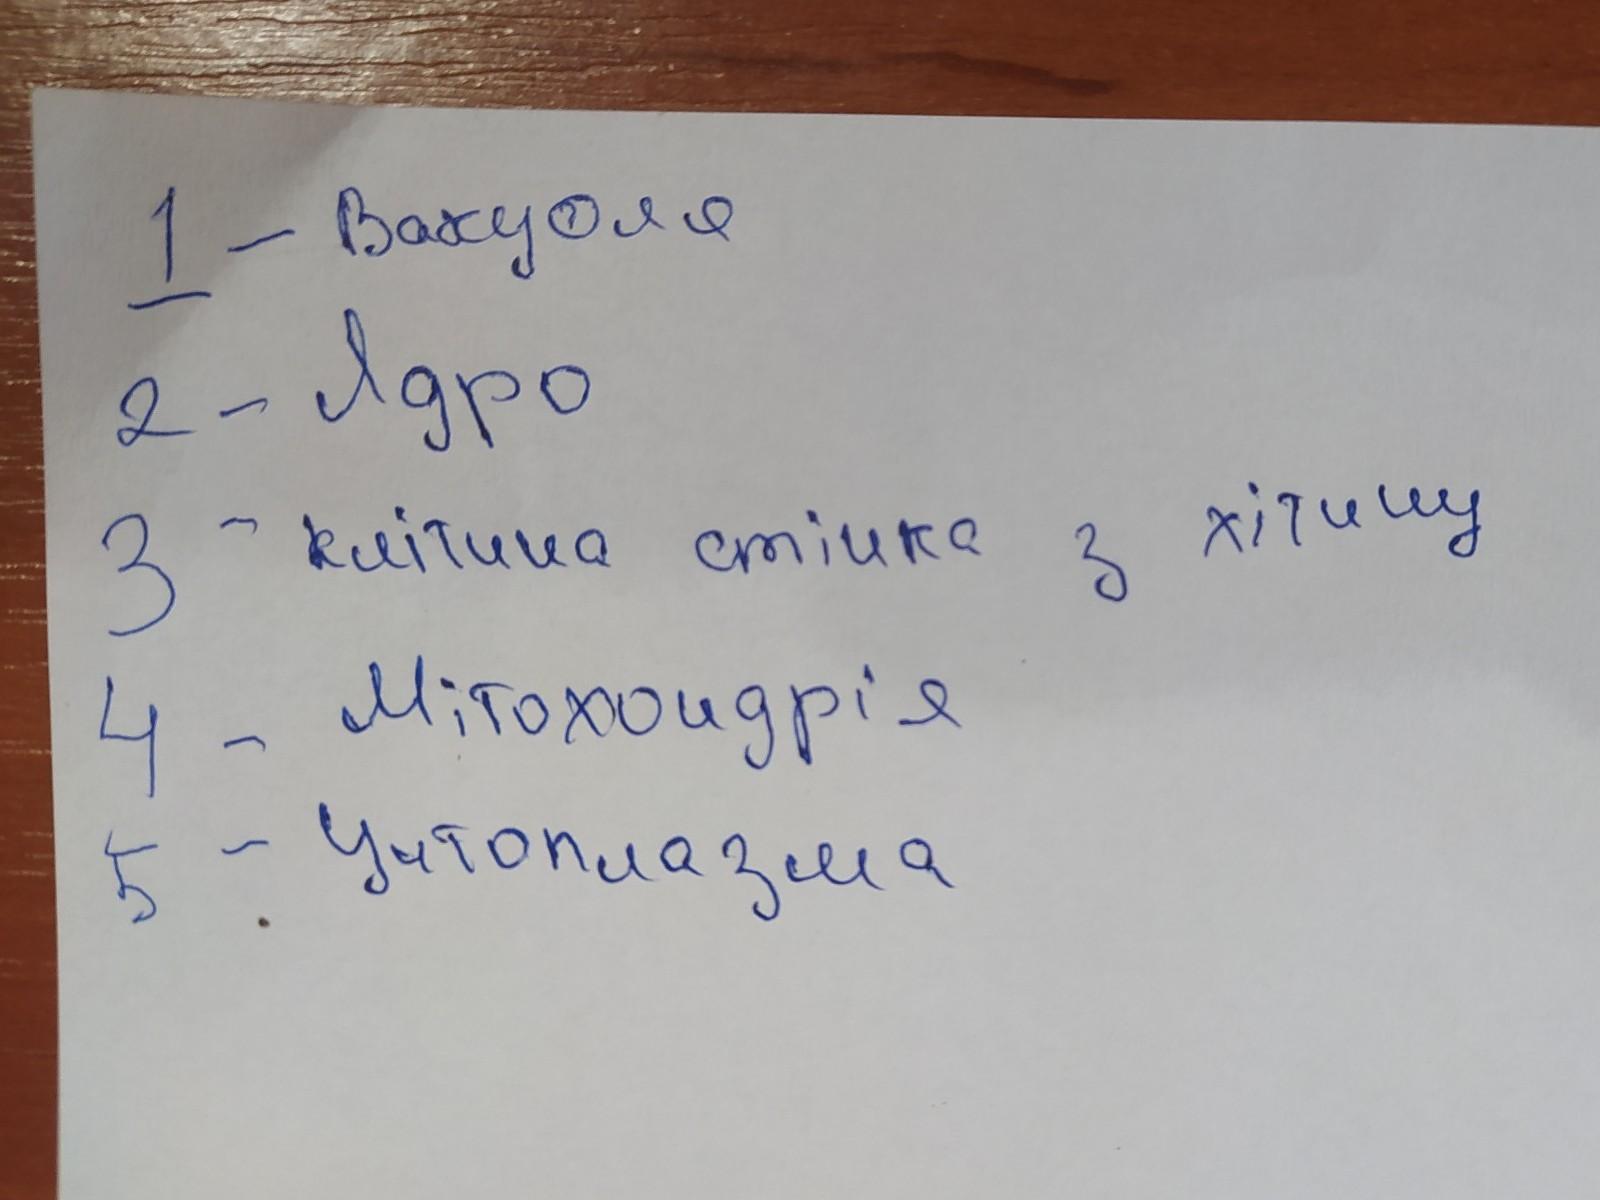 1 - Вакуоля
2 - Ядро
3 - клітина стінка з хітину
4 - Мітохондрія
5 - Цитоплазма